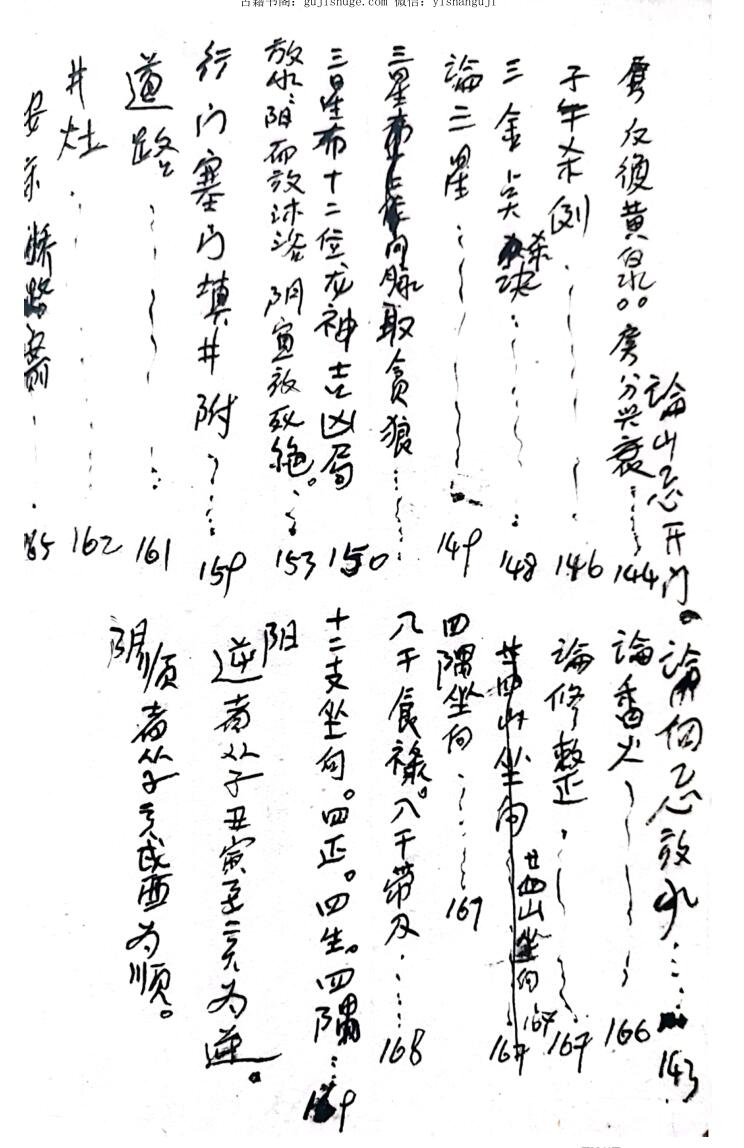 古籍书阁：gujishuge.com 微信：yishanguji
論山忌开门。論向忌放水……143
反復黄泉。房分興衰……144
子午杀例……146
三金尖杀決……148
論三星……149
三星布向脉取貪狼……
三星布十二位龙神吉凶局 150
放水：阳而放沐浴 阴宜放死絶。……153
行门塞门填井附……159
道路……161
井灶……162
論香火……166
論修整正……167
廿四山坐向……167
廿四山坐向 167
四隅坐向……167
八干食禄。八干带刃……168
十二支坐向。四正。四生。四隅……
阳逆者从子丑寅至亥为逆。
阴顺者从子亥戌酉为顺。